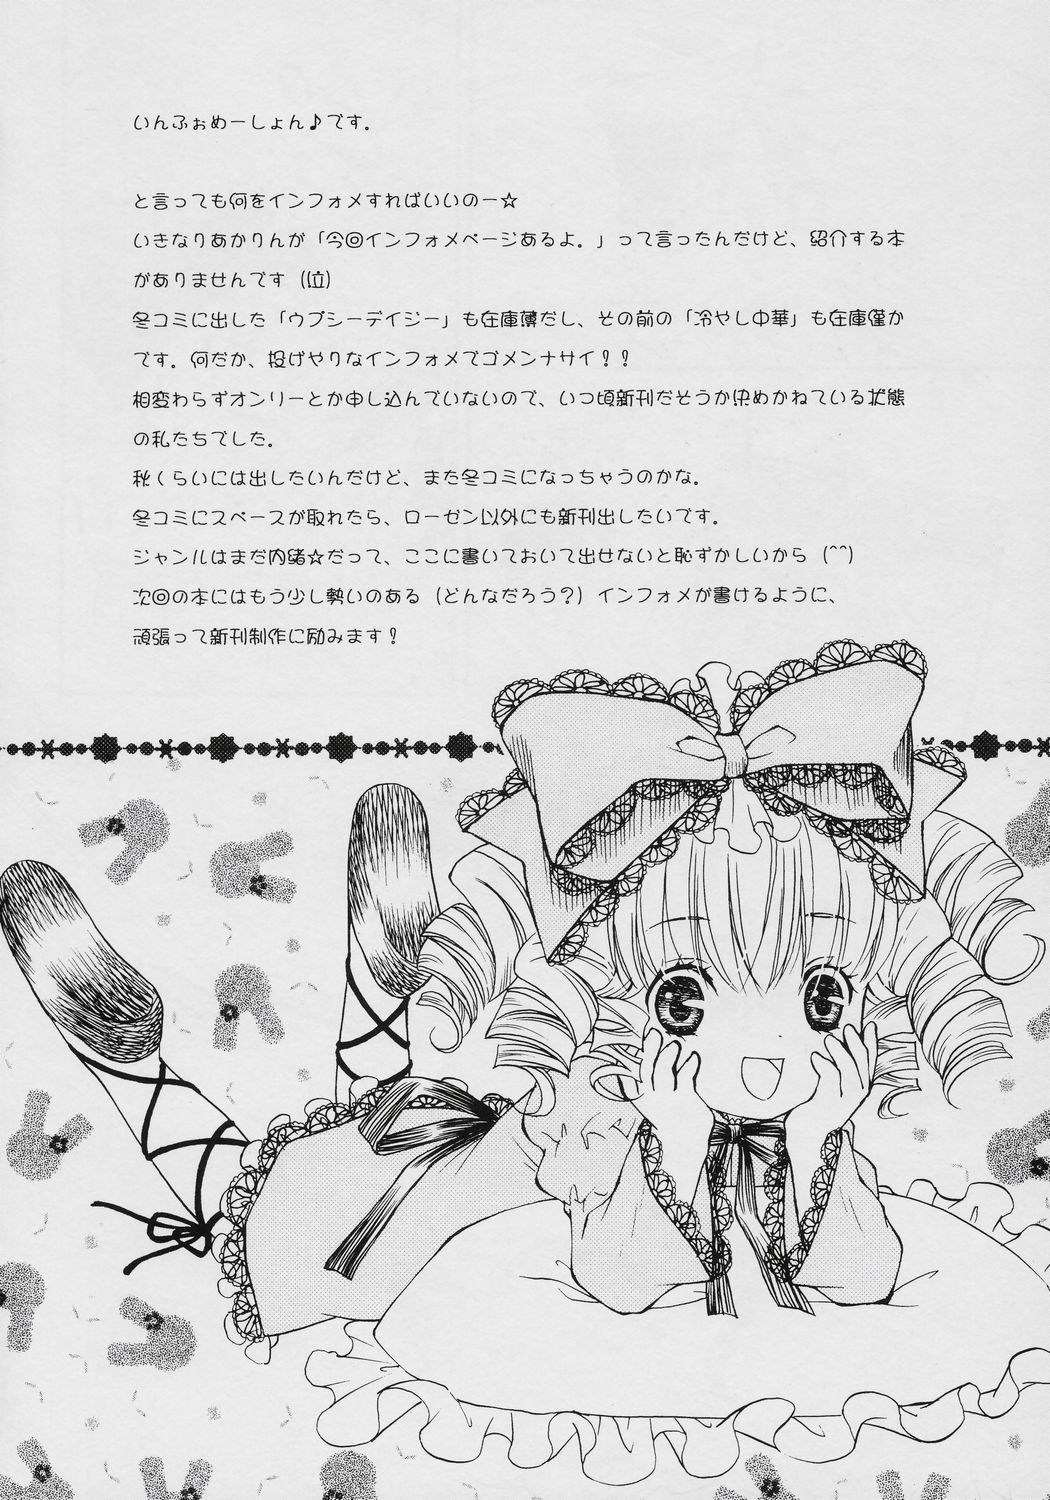 いんふぉめーしょん♪です。
と言っても何をインフォメすればいいのー☆
いきなりあかりんが「今回インフォメページあるよ。」って言ったんだけど、紹介する本
がありませんです（泣）
冬コミに出した「ウプシーデイジー」も在庫薄だし、その前の「冷やし中華」も在庫僅か
です。何だか、投げやりなインフォメでゴメンナサイ！！
相変わらずオンリーとか申し込んでいないので、いつ頃新刊だそうか決めかねている状態
の私たちでした。
秋くらいには出したいんだけど、また冬コミになっちゃうのかな。
冬コミにスペースが取れたら、ローゼン以外にも新刊出したいです。
ジャンルはまだ内緒☆だって、ここに書いておいて出せないと恥ずかしいから（^^）
次回の本にはもう少し勢いのある（どんなだろう？）インフォメが書けるように、
頑張って新刊制作に励みます！